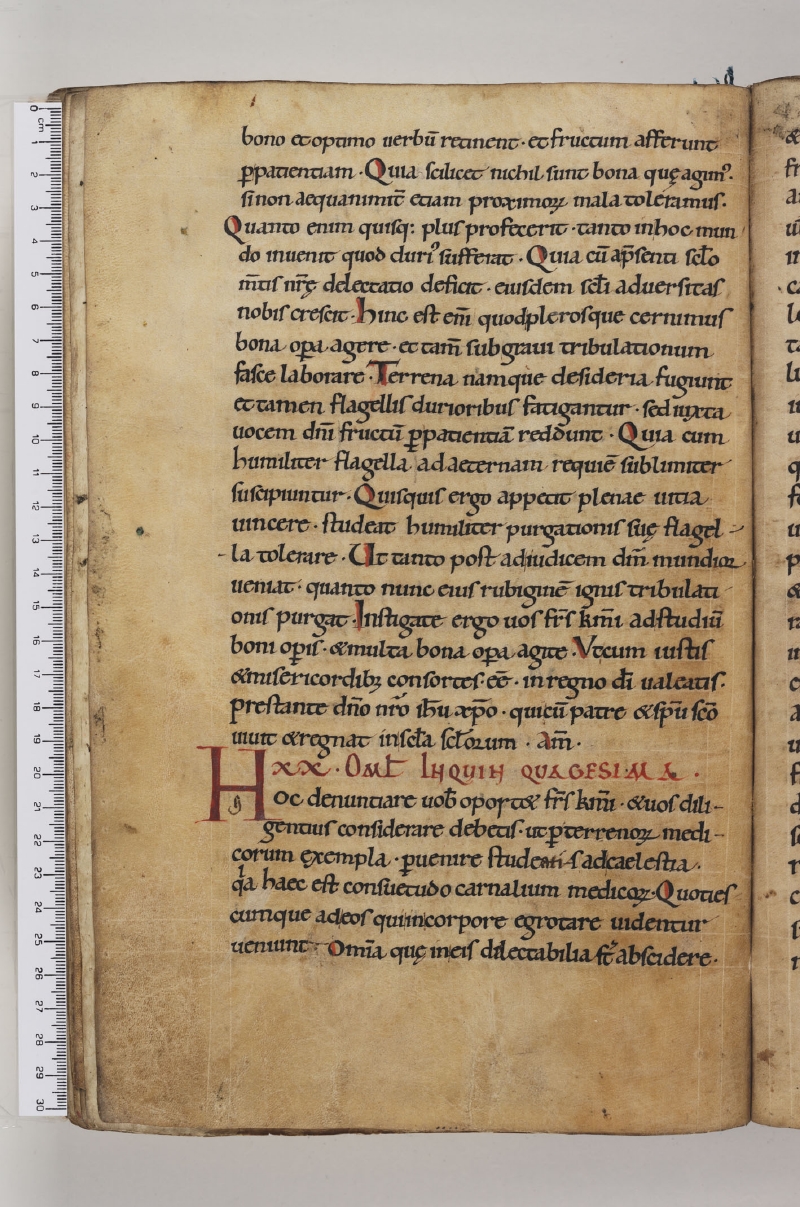 bono et optimo uerbū retinent· et fructum afferunt
p̱patientiam · Quia scilicet nichil sunt bona quę agimꝰ.
si non aequanimit̄ etiam proximoꝝ mala toleramus.
Quanto enim quisq; plus profecerit · tanto in hoc mun
do inuenit quod duriꝰ sufferat · Quia cū ap̄senti sc̄lo
m̄tis nr̄ę delectatio deficit · eiusdem sc̄li aduersitas
nobis crescit · hinc est em̄ quod plerosque cernimus
bona op̱a agere · et tam̄ sub graui tribulationum
fasce laborare · Terrena namque desideria fugiunt
et tamen flagellis durioribus fatigantur · sed iuxta
uocem dn̄i fructū p̱patientiā reddunt · Quia cum
humiliter flagella ad aeternam requiē sublimiter
suscipiuntur · Quisquis ergo appetit plenae uitia
uincere · studeat humiliter purgationis suę flagel-
-la tolerare · Ut tanto post ad iudicem dn̄i mundioꝝ
ueniat · quanto nunc eius rubiginē ignis tribulati
onis purgat · Instigate ergo uos fr̄s km̄i ad studiū
boni op̱is · & multa bona op̱a agite · Vt cum iustis
& misericordibꝫ consortes ee̅ · in regno dī ualeatis.
prestante dn̄o nr̄o ih̄u xp̄o · qui cū patre & sp̄u sc̄o
uiuit & regnat in sc̄la sc̄loꝝum · am̄·
XX · OMĒL IN QUINQUAGESIMA ·
Hoc denuntiare uob̄ oport& fr̄s km̄i · & uos dili-
gentius considerare debetis · ut p̱ terrenoꝝ medi-
corum exempla · p̱uenire studeatis ad caelestia.
qia haec est consuetudo carnalium medicoꝝ · Quoties
cumque ad eos qui in corpore egrotare uidentur
ueniunt · Omia quę in eis dilectabilia st̄ abscidere ·